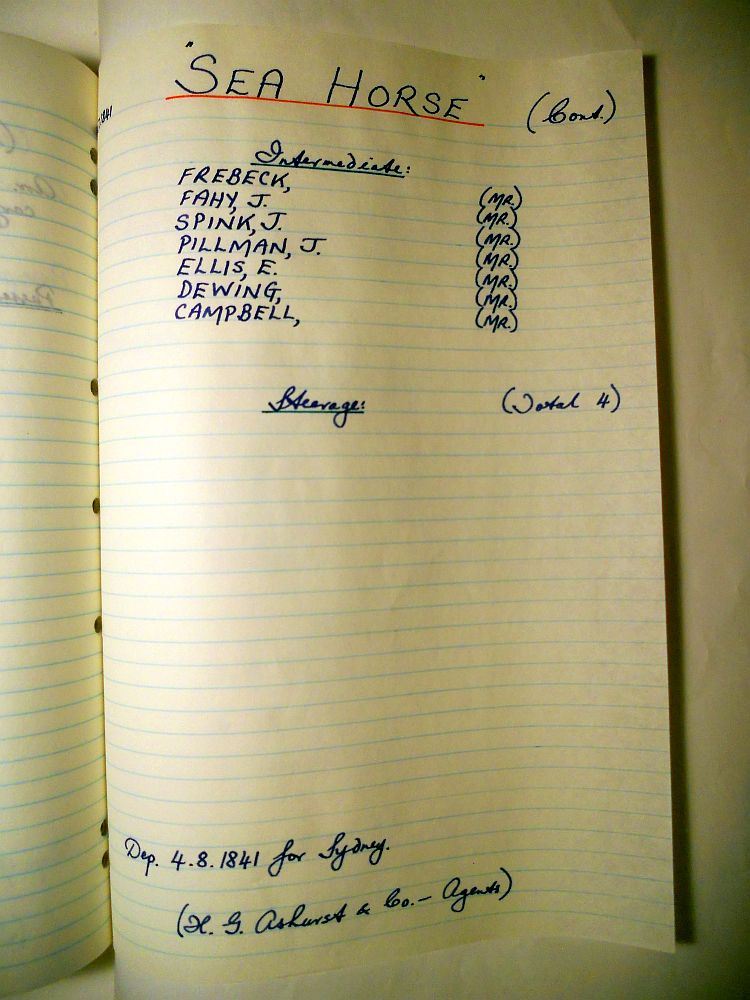 "SEA HORSE" (Cont.)
Intermediate:
FREBECK, (MR.)
FAHY, J. (MR.)
SPINK, J. (MR.)
PILLMAN, J. (MR.)
ELLIS, E. (MR.)
DEWING, (MR.)
CAMPBELL, (MR.)
Steerage: (Total 4)
Dep. 4.8.1841 for Sydney.
(H. G. Ashurst & Co. - Agents)